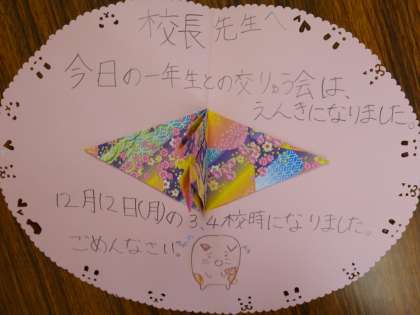 校長先生へ
今日の一年生との交りゅう会は、
えんきになりました。
12月12日(月)の3、4校時になりました。
ごめんなさい。